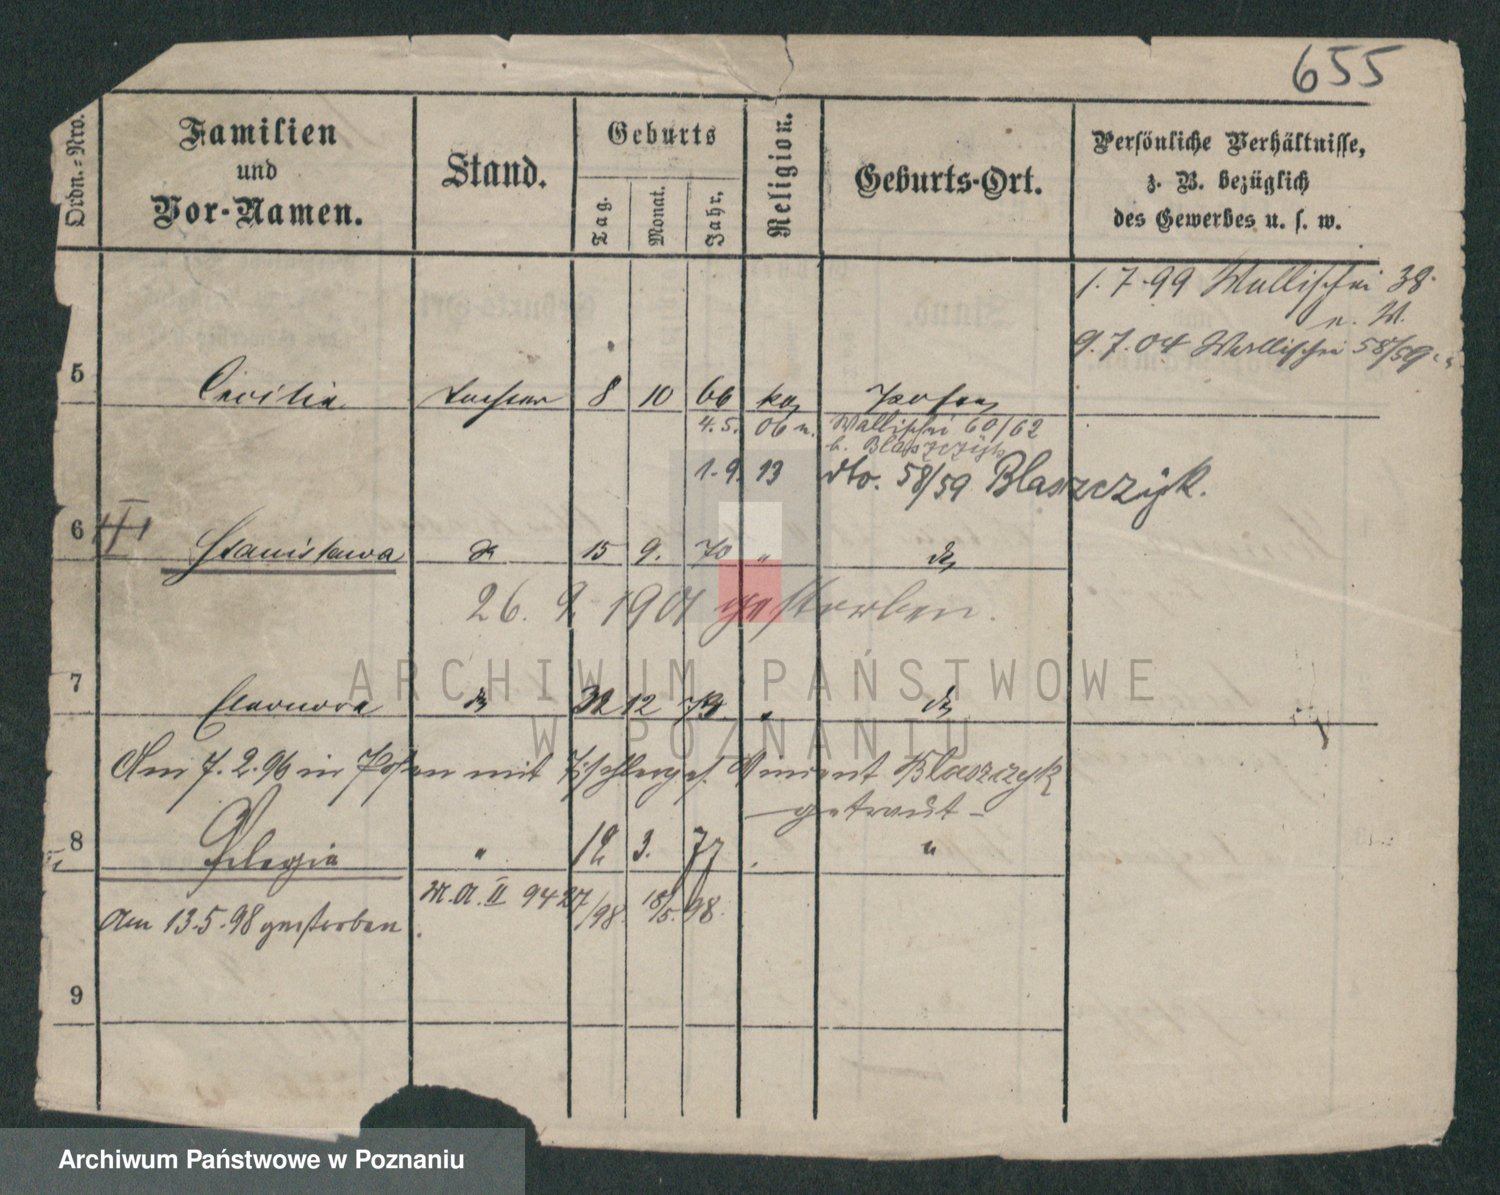 655
Ordn.=Nro.
Familien
und
Vor-Namen.
Stand.
Geburts
Tag.
Monat.
Jahr.
Religion.
Geburts-Ort.
Persönliche Verhältnisse,
z. B. bezüglich
des Gewerbes u. s. w.
1.7.99 Wallischei 38.
n. W.
9.7.04 Wallischei 58/59
5 Cecilia Tochter 8 10 66 ka Posen
4.5. 06 n. Wallischei 60/62
b. Blaszczyk
1.9. 13 dto. 58/59 Blaszczyk.
6 Stanislawa do 15 9. 70 " do
26. 9 1901 gestorben.
7 Eleonora do 12 " do
Am 7.2.96 in Posen mit Tischlerges. Vincent Blaszczyk
getraut
8 Pelagia " 12 3. 77 "
M.A. II 94 27/98. 18/5.98.
Am 13.5.98 gestorben.
9
ARCHIWUM PAŃSTWOWE
W POZNANIU
Archiwum Państwowe w Poznaniu